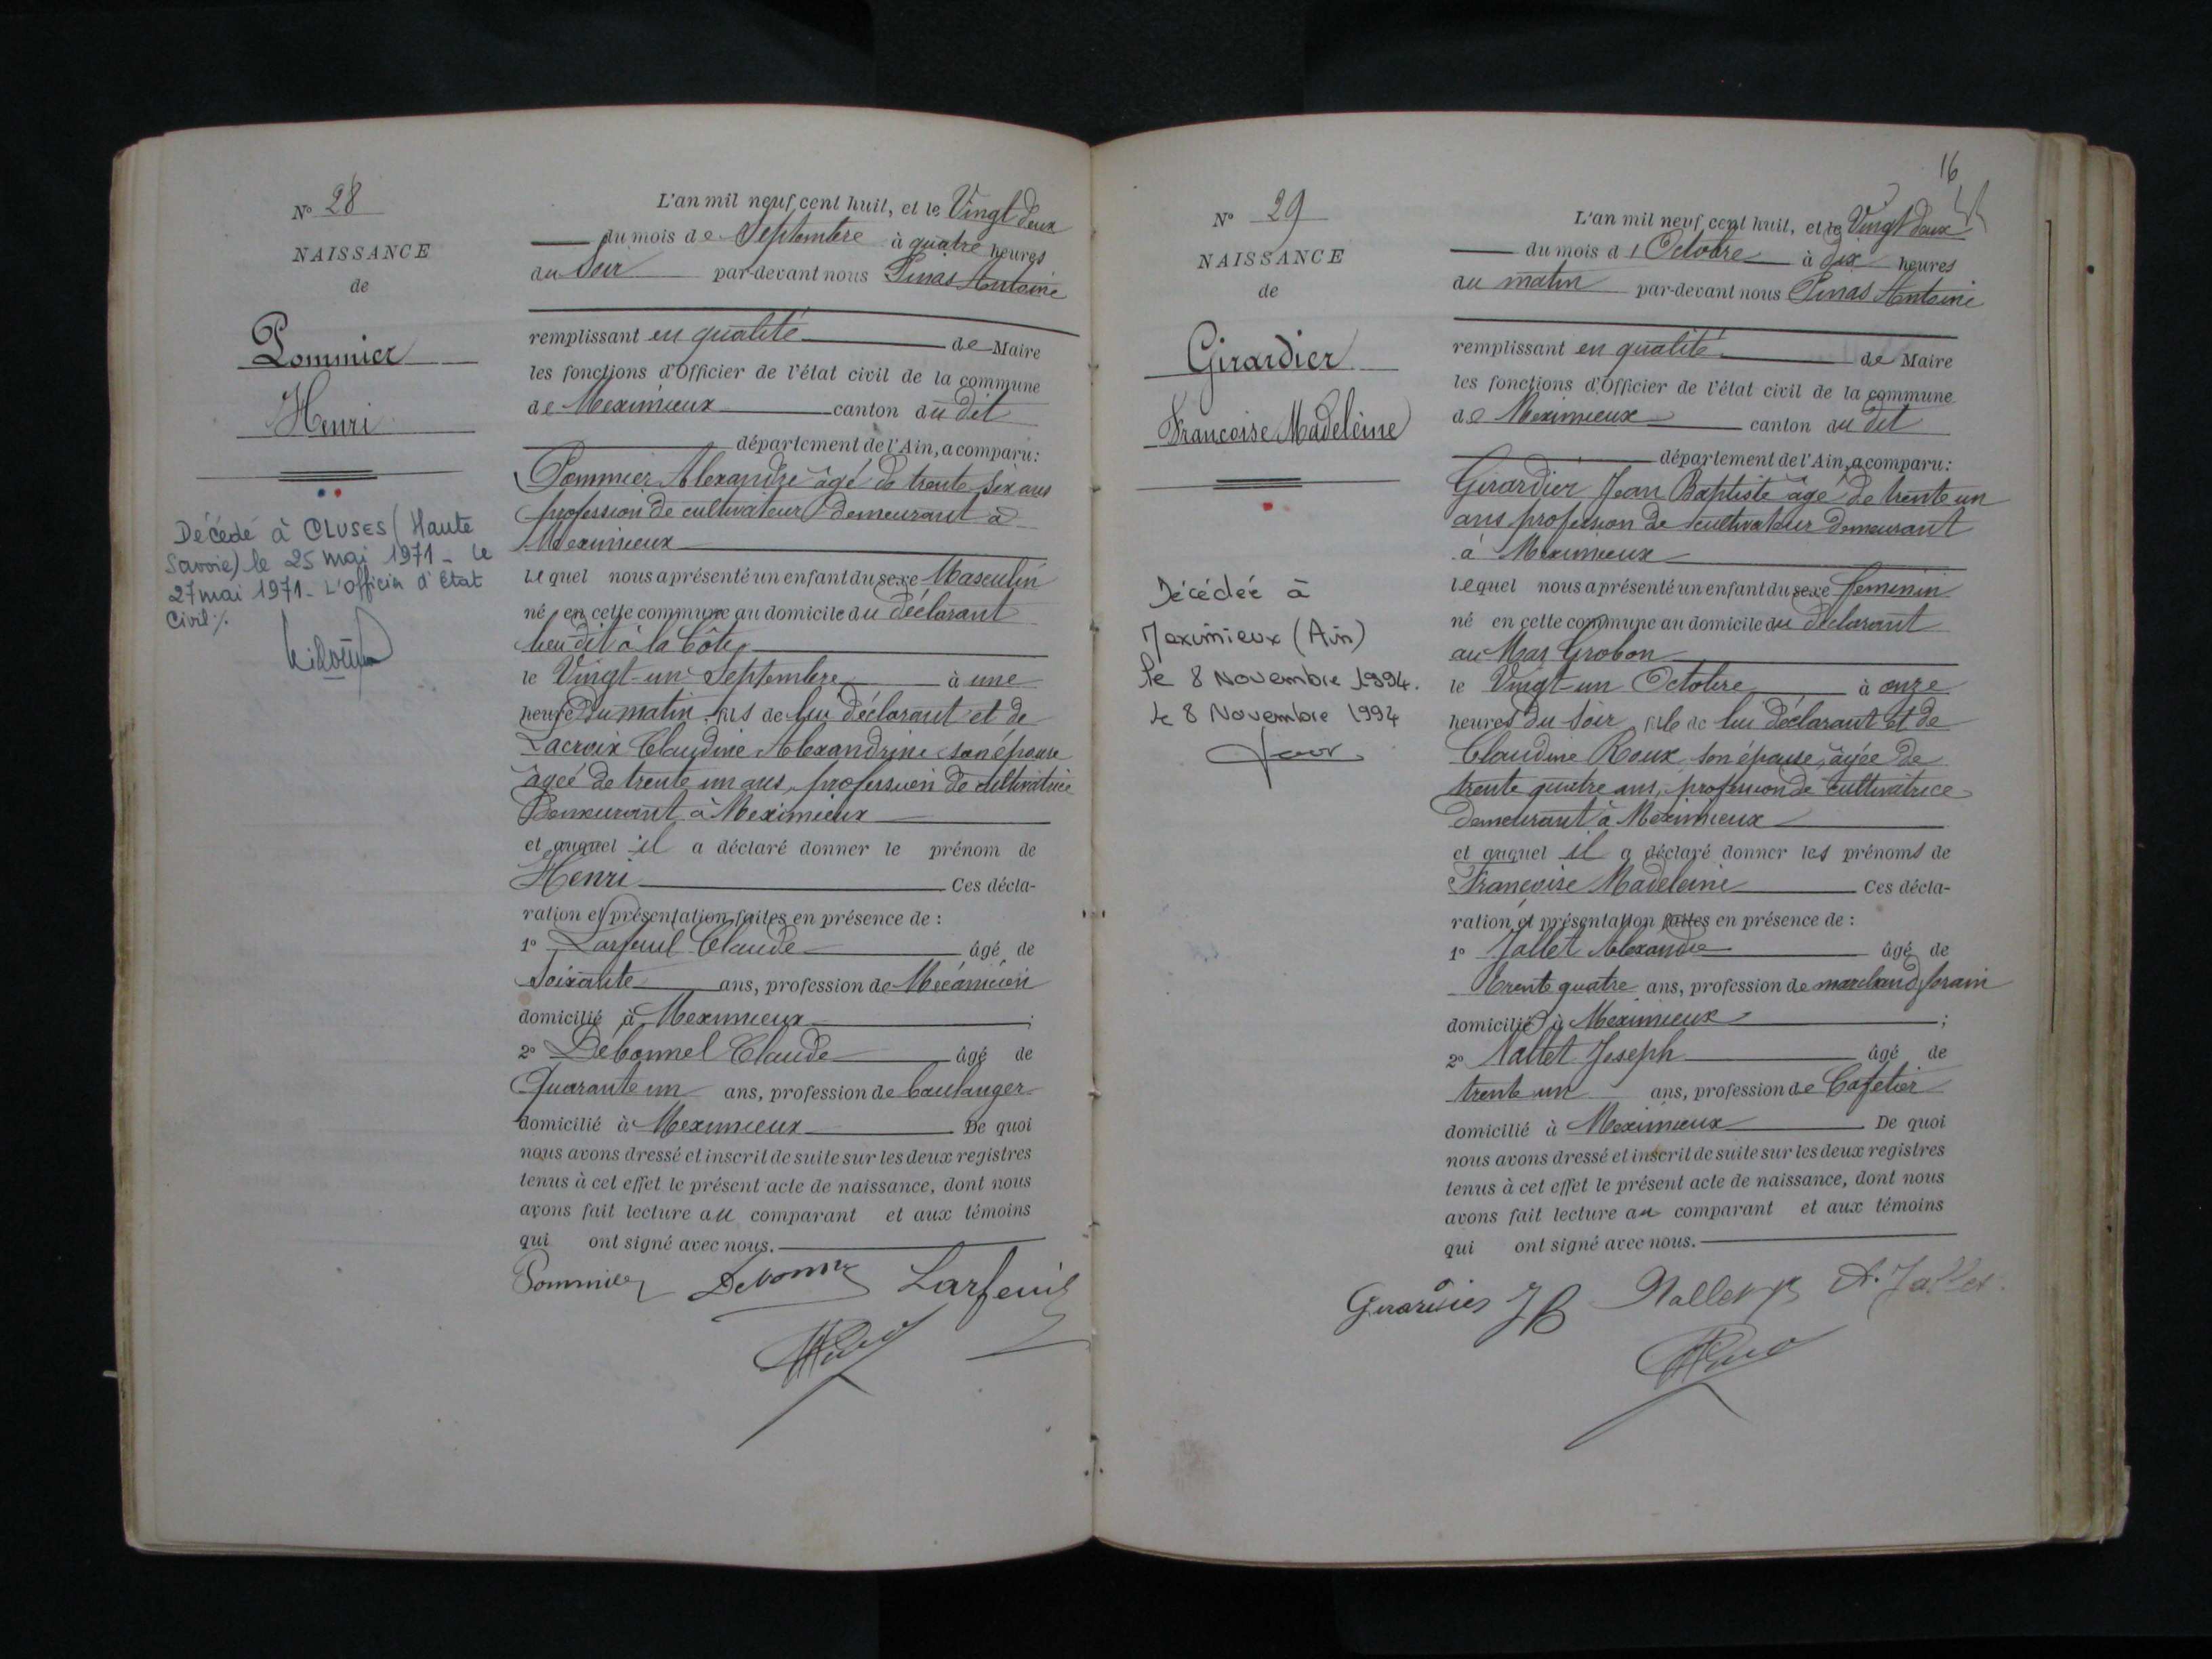 N° 28
NAISSANCE
de
Pommier
Henri
Décédé à CLUSES (Haute
Savoie) le 25 mai 1971 - le
27 mai 1971 - L'officier d'Etat
Civil %.
L'an mil neuf cent huit, et le Vingt deux
du mois de Septembre à quatre heures
du Soir par-devant nous Pinas Antoine
remplissant en qualité de Maire
les fonctions d'Officier de l'état civil de la commune
de Meximieux canton du dit
département de l'Ain, a comparu:
Pommier Alexandre âgé de trente six ans
profession de cultivateur demeurant à
Meximieux
lequel nous a présenté un enfant du sexe Masculin
né en cette commune au domicile du déclarant
lieu dit à la Côte
le Vingt-un Septembre à une
heure du matin, fils de lui déclarant et de
Lacroix Claudine Alexandrine son épouse
âgée de trente un ans, profession de cultivatrice
Demeurant à Meximieux
et auquel il a déclaré donner le prénom de
Henri Ces décla-
ration et présentation faites en présence de :
1° Larfeuil Claude âgé de
Soixante ans, profession de Mécanicien
domicilié à Meximieux ;
2° Debonnel Claude âgé de
Quarante un ans, profession de boulanger
domicilié à Meximieux De quoi
nous avons dressé et inscrit de suite sur les deux registres
tenus à cet effet le présent acte de naissance, dont nous
avons fait lecture au comparant et aux témoins
qui ont signé avec nous.
Pommier Debonnel Larfeuil
16
N° 29
NAISSANCE
de
Girardier
Francoise Madeleine
Décédée à
Meximieux (Ain)
le 8 Novembre 1994.
le 8 Novembre 1994
L'an mil neuf cent huit, et le Vingt deux
du mois d'Octobre à dix heures
du matin par-devant nous Pinas Antoine
remplissant en qualité de Maire
les fonctions d'Officier de l'état civil de la commune
de Meximieux canton du dit
département de l'Ain, a comparu:
Girardier Jean Baptiste âgé de trente un
ans profession de cultivateur demeurant
à Meximieux
lequel nous a présenté un enfant du sexe feminin
né en cette commune au domicile du déclarant
au Mas Grobon
le Vingt-un Octobre à onze
heures du soir, fille de lui déclarant et de
Claudine Roux son épouse, âgée de
trente quatre ans, profession de cultivatrice
demeurant à Meximieux
et auquel il a déclaré donner les prénoms de
Françoise Madeleine Ces décla-
ration et présentation faites en présence de :
1° Jallet Alexandre âgé de
Trente quatre ans, profession de marchand forain
domicilié à Meximieux ;
2° Nallet Joseph âgé de
trente un ans, profession de Cafetier
domicilié à Meximieux De quoi
nous avons dressé et inscrit de suite sur les deux registres
tenus à cet effet le présent acte de naissance, dont nous
avons fait lecture au comparant et aux témoins
qui ont signé avec nous.
Girardier JB Nallet A. Jallet